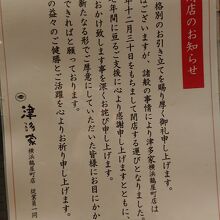 店のお知らせ
格別のお引き立てを賜り厚く御礼申し上げます。
ではございますが、諸般の事情により津多家横浜臨星町店は
年十二月三十日をもちまして閉店する運びとなりました。
年間に亘るご支援に心より感謝申し上げますとともに、
おかけ致します事を深くお詫び申し上げます。
新たなる形でご厚意にしていただいた皆様にお目にかか
できればと願っております。
の益々のご健勝とご活躍を心よりお祈り申し上げます。
津多家
横浜臨星町店 従業員一同